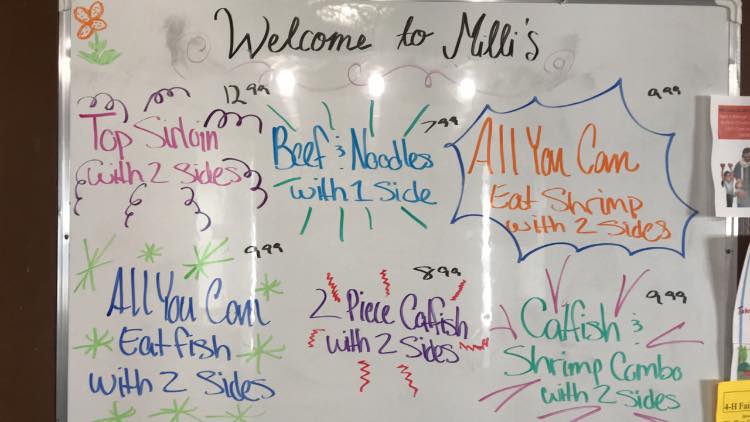 Welcome to Milli's
12.99
Top Sirloin
with 2 Sides
7.99
Beef & Noodles
with 1 Side
9.99
All You Can
Eat Shrimp
with 2 Sides
9.99
All You Can
Eat fish
with 2 Sides
8.99
2 Piece Catfish
with 2 Sides
9.99
Catfish &
Shrimp Combo
with 2 Sides
4-H Fai